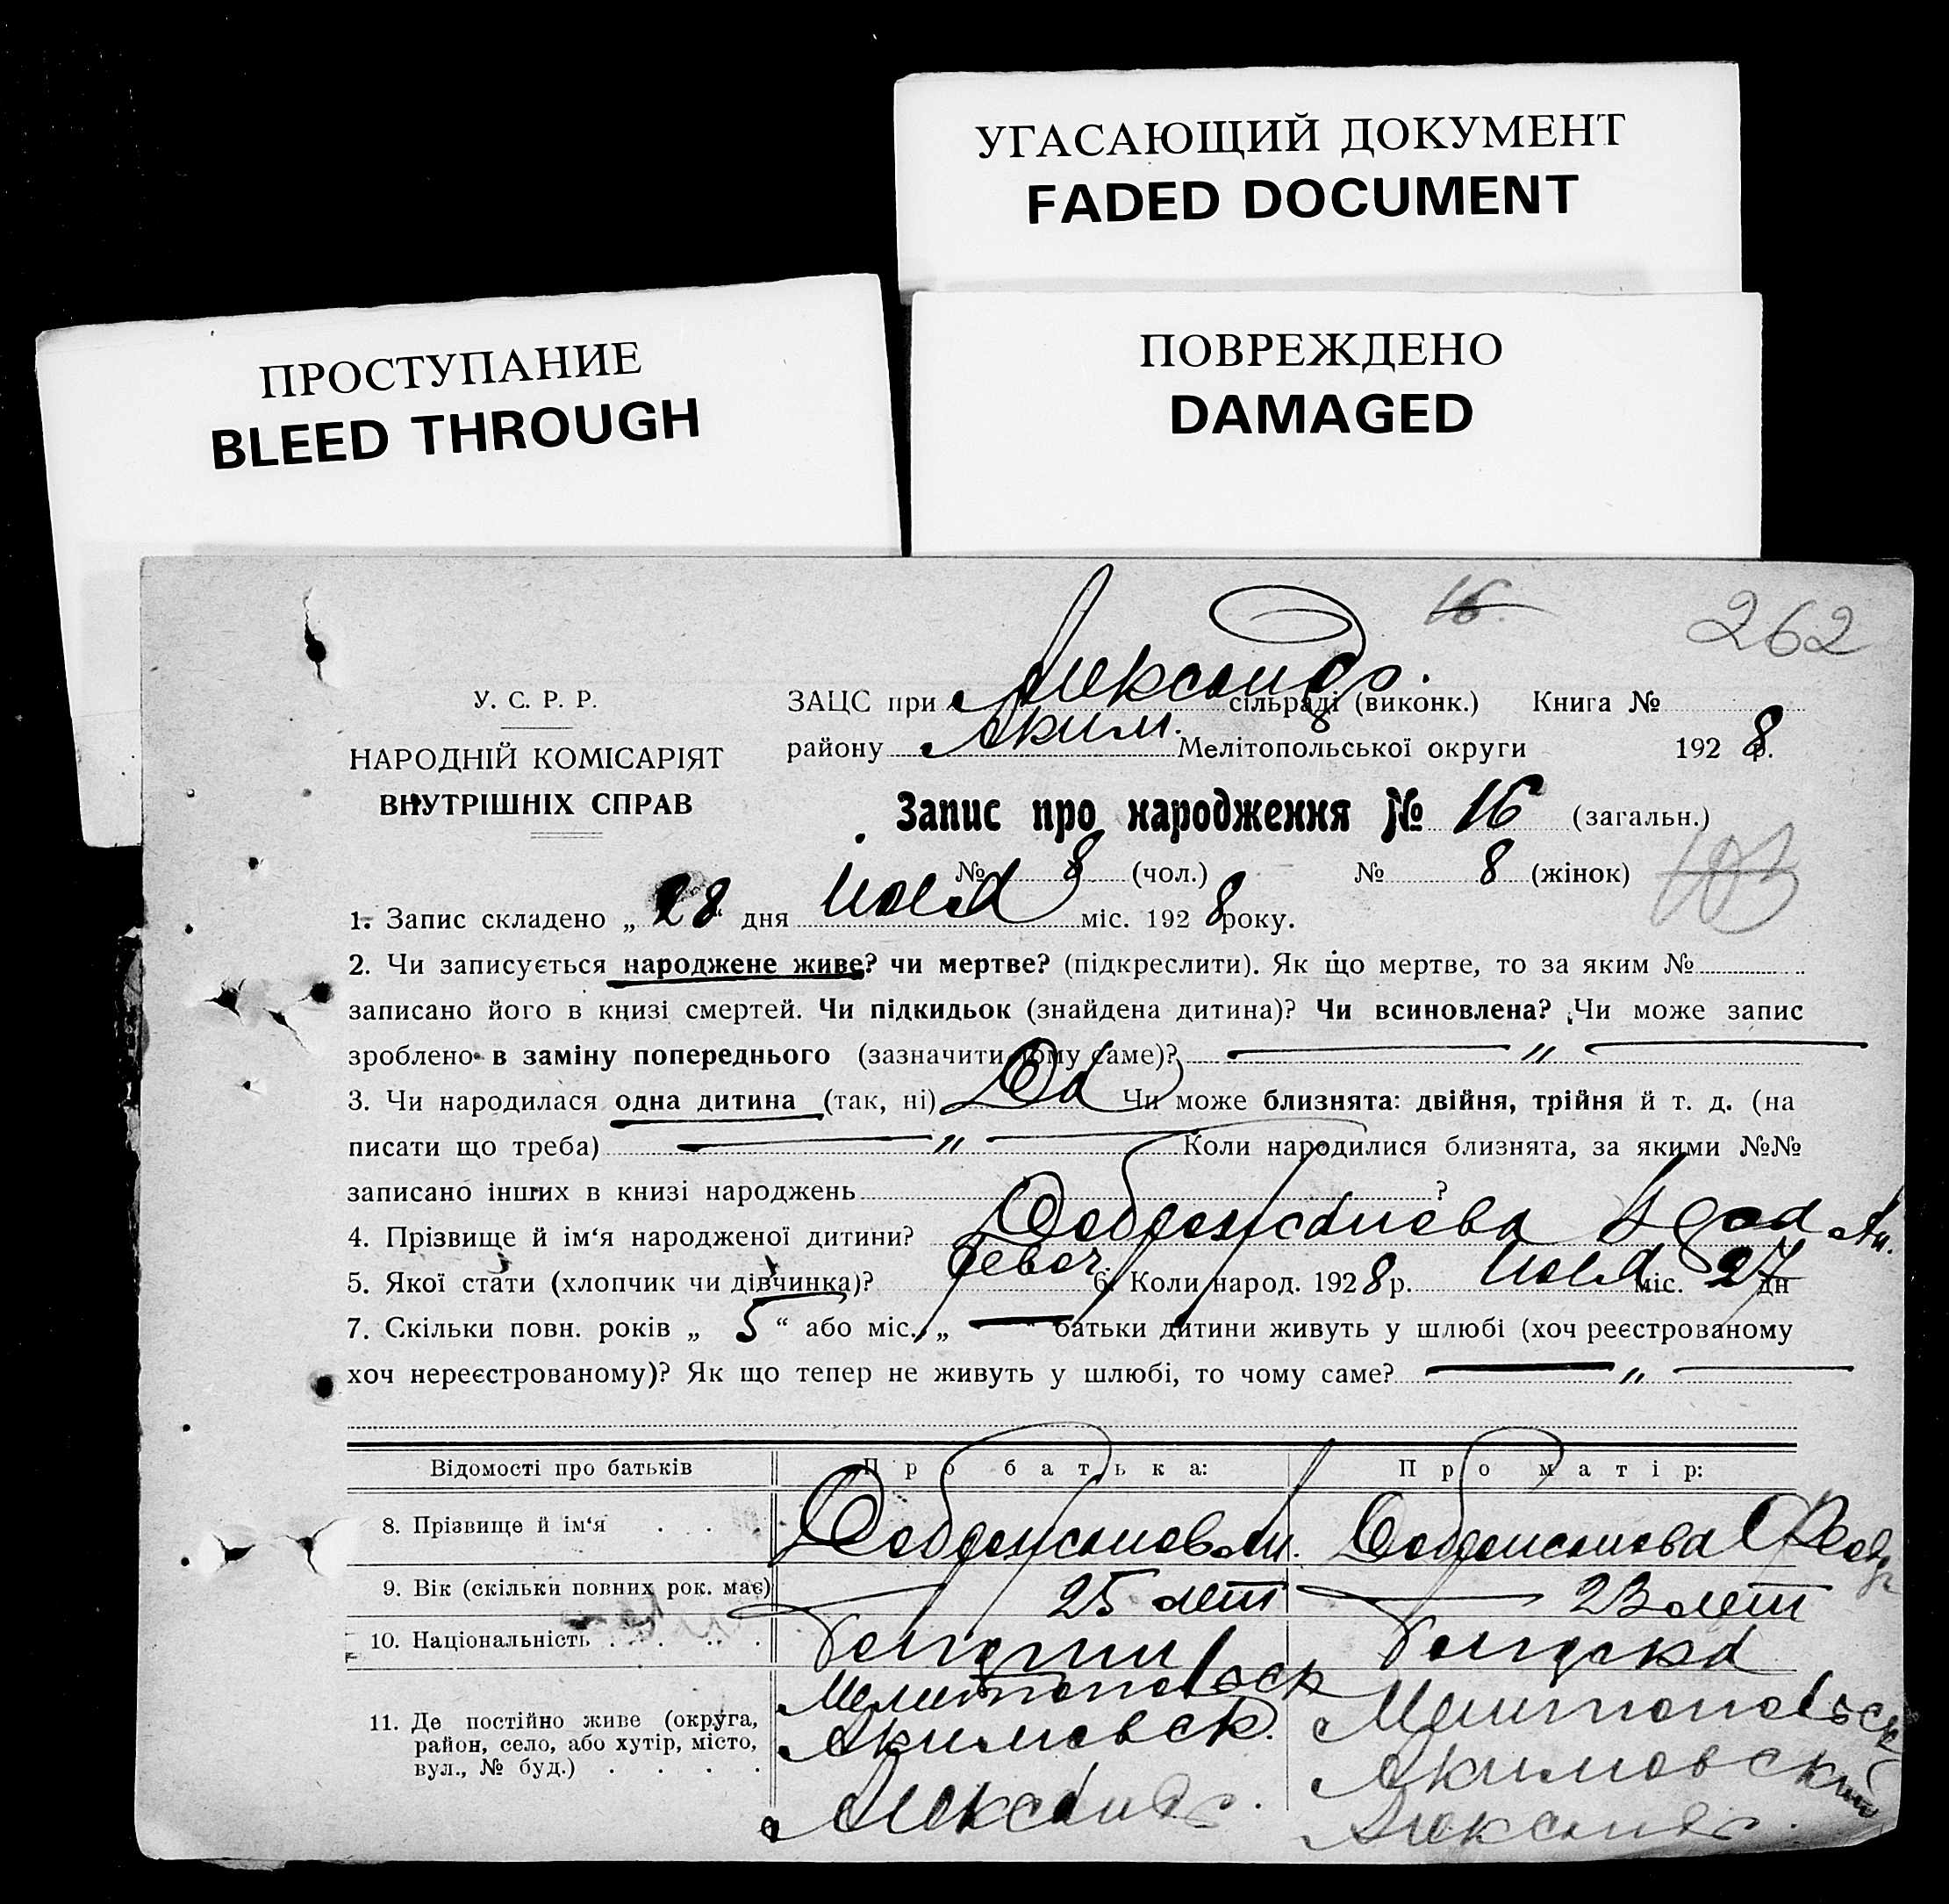 УГАСАЮЩИЙ ДОКУМЕНТ
FADED DOCUMENT
ПРОСТУПАНИЕ
BLEED THROUGH
ПОВРЕЖДЕНО
DAMAGED
16. 262
У. С. Р. Р.
НАРОДНІЙ КОМІСАРІЯТ
ВНУТРІШНІХ СПРАВ
ЗАЦС при Александр. сільраді (виконк.) Книга №
району Аким. Мелітопольської округи 1928 р.
Запис про народження № 16 (загальн.)
№ 8 (чол.) № 8 (жінок) 103
1. Запис складено „28“ дня Июля міс. 1928 року.
2. Чи записується народжене живе? чи мертве? (підкреслити). Як що мертве, то за яким №
записано його в книзі смертей. Чи підкидьок (знайдена дитина)? Чи всиновлена? Чи може запис
зроблено в заміну попереднього (зазначити чому саме)? — „ —
3. Чи народилася одна дитина (так, ні) Да Чи може близнята: двійня, трійня й т. д. (на
писати що треба) — „ — Коли народилися близнята, за якими №№
записано інших в книзі народжень ?
4. Прізвище й ім‘я народженої дитини?
5. Якої стати (хлопчик чи дівчинка)? девоч 6. Коли народ. 1928 р. Июля міс. 27 дн
7. Скільки повн. років „ 5 “ або міс. „ — “ батьки дитини живуть у шлюбі (хоч реєстрованому
хоч нереєстрованому)? Як що тепер не живуть у шлюбі, то чому саме? — „ —
Відомості про батьків Про батька: Про матір:
8. Прізвище й ім‘я . . .
9. Вік (скільки повних рок. має) 25 лет 23 лет
10. Національність . . . . Болгарин Болгарка
11. Де постійно живе (округа,
район, село, або хутір, місто,
вул., № буд.) . . . .
Мелитопольск
Акимовск.
Александр.
Мелитопольск
Акимовский
Александр.